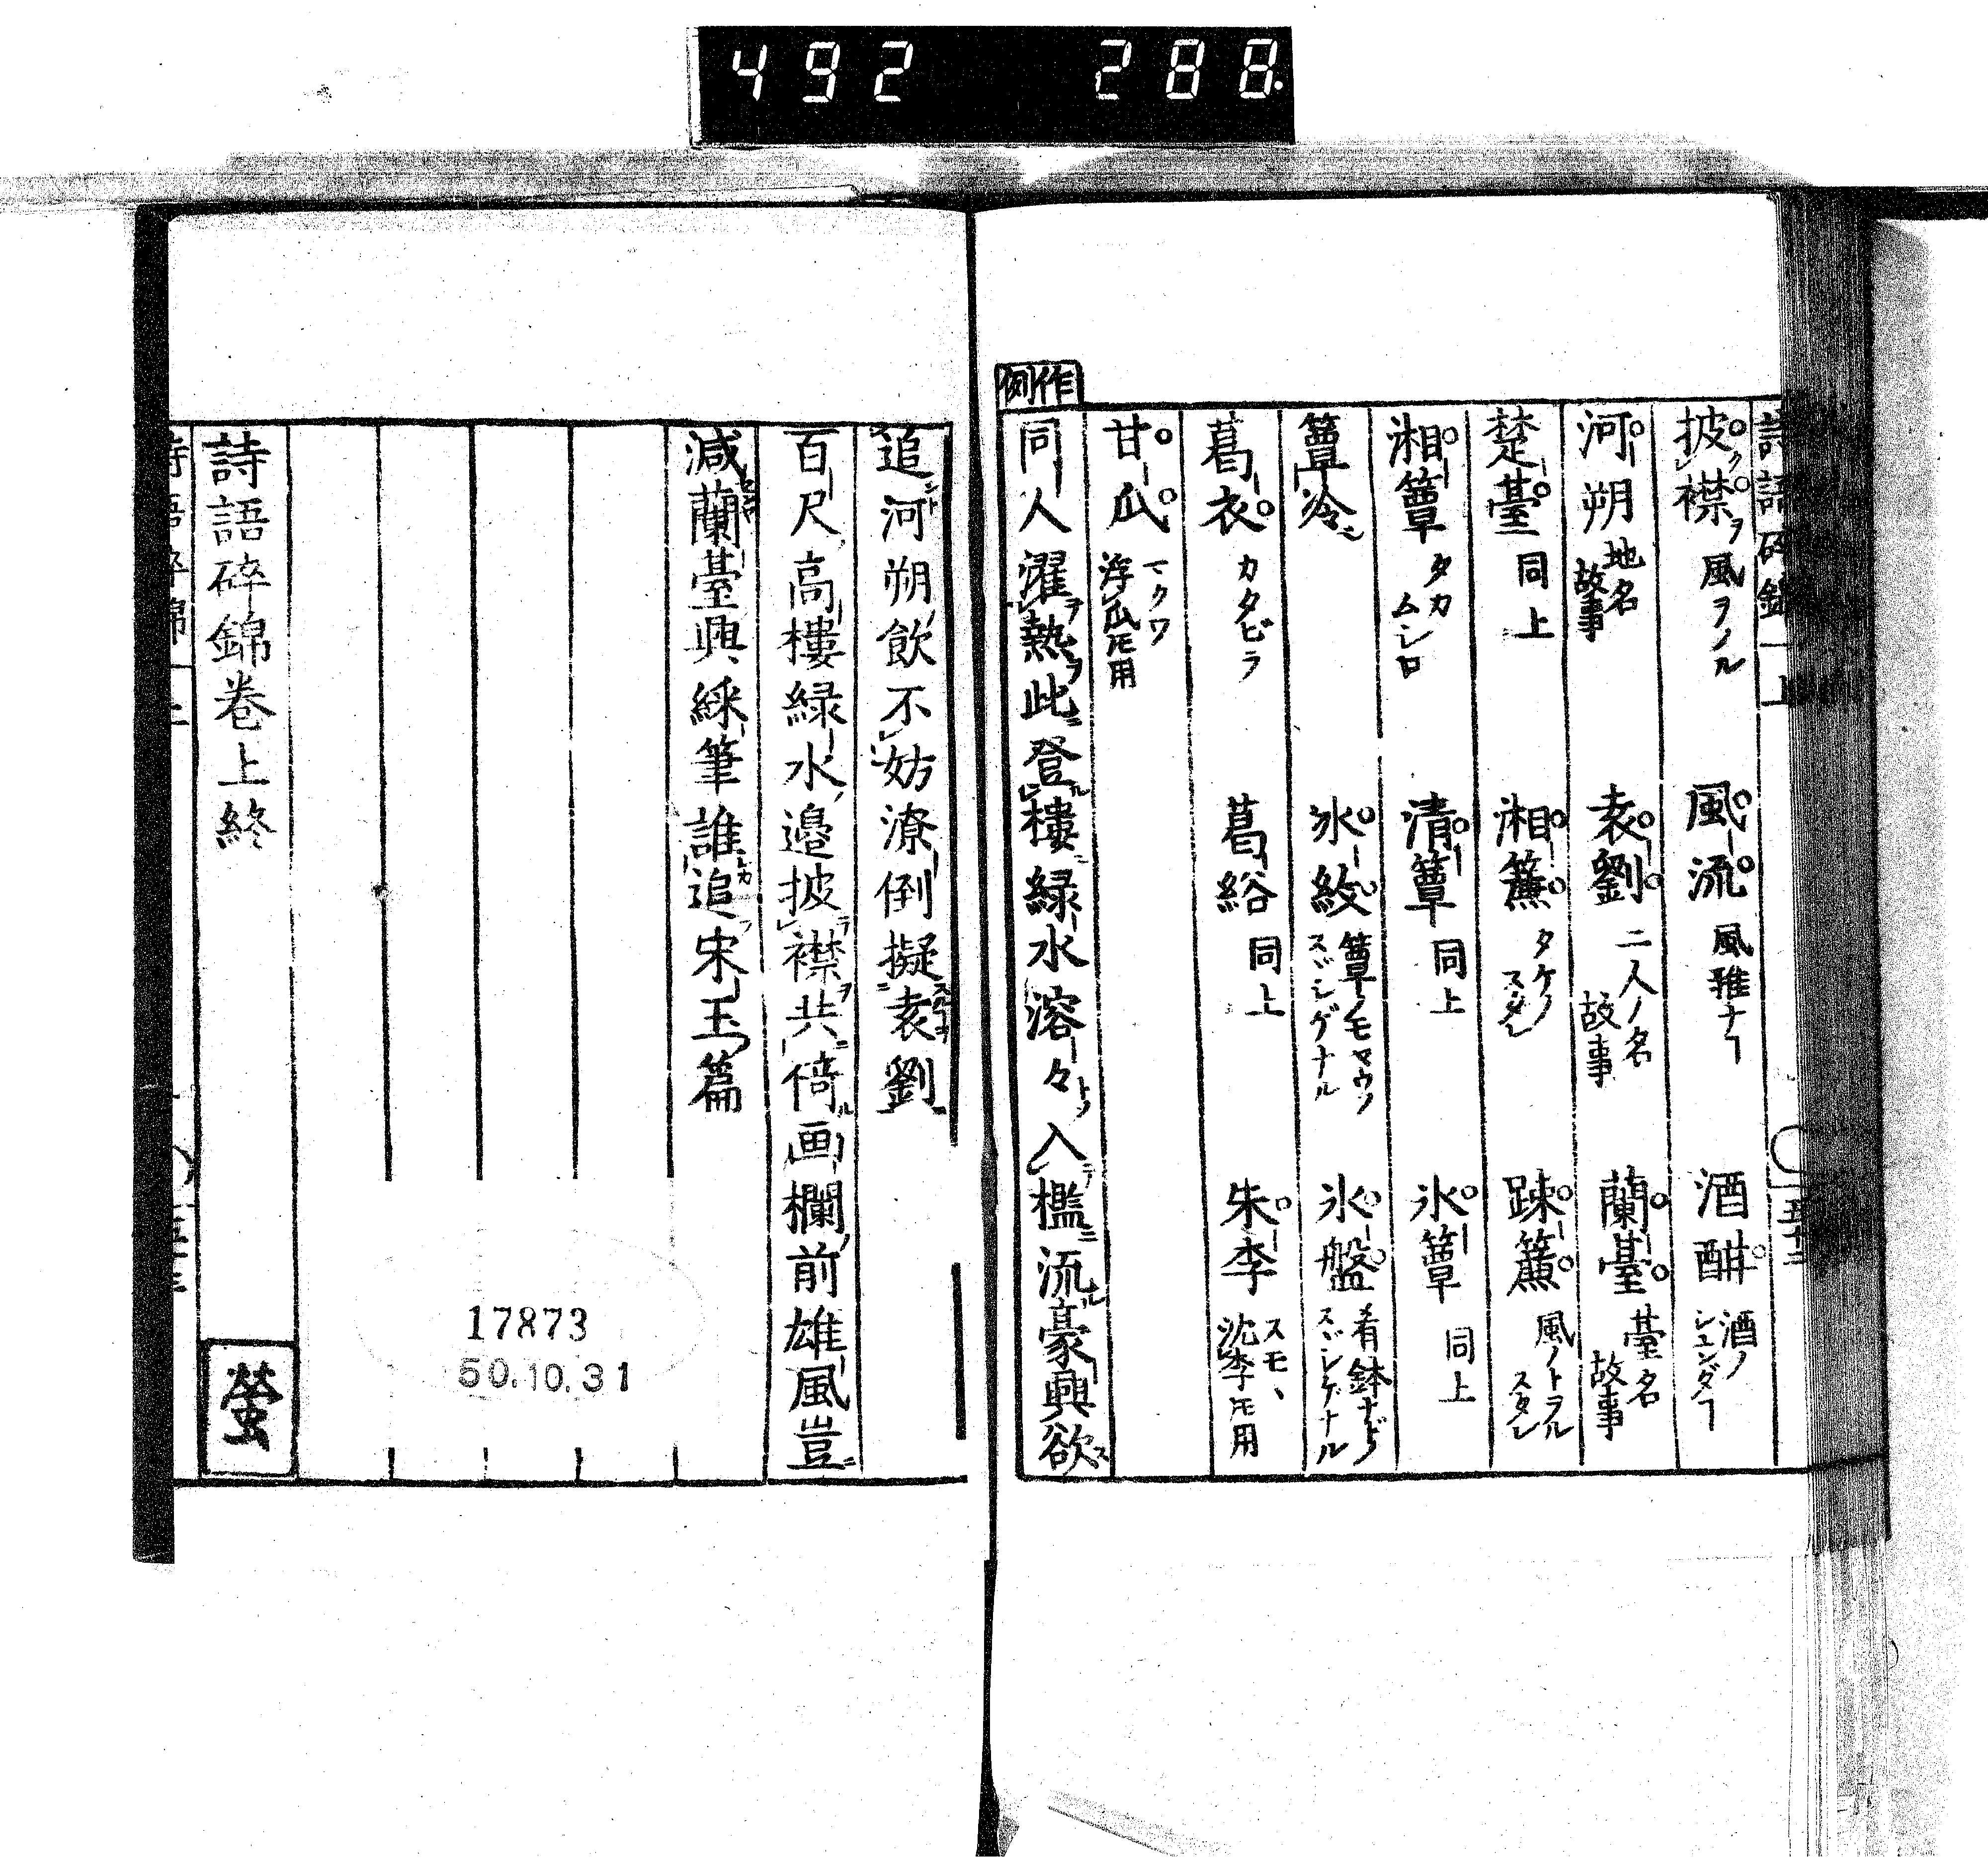 492 288
詩語碎錦 上 五十二
披襟 風ヲノル 風流 風雅ナヿ 酒酣 酒ノシエンダヿ
河朔 地名故事 袁劉 二人ノ名故事 蘭臺 臺名故事
楚臺 同上 湘簾 タケノスダレ 踈簾 風ノトヲルスダレ
湘簟 タカムシロ 清簟 同上 氷簟 同上
簟冷 氷紋 簟ノモヤウノスヾシゲナル 氷盤 肴鉢ナドノスヾシゲナル
葛衣 カタビラ 葛綌 同上 朱李 スモヽ沈李𪜈用
甘瓜 マクワ浮瓜𪜈用
作例
同人濯熱此登樓緑水溶々入檻流豪興欲
追河朔飲不妨潦倒擬袁劉
百尺高樓緑水邉披襟共倚画欄前雄風豈
減蘭臺興綵筆誰追宋玉篇
17873
50.10.31
詩語碎錦卷上終
螢
詩語碎錦 上 五十三